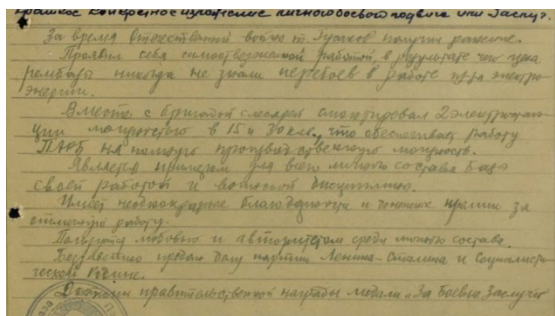 Краткое конкретное изложение личного боевого подвига или заслуг.
За время отечественной войны т. Гусаков получил ранение.
Проявил себя самоотверженной работой, в результате чего цеха
рембазы никогда не знали перебоев в работе из-за электро-
энергии.
Вместе с бригадой слесарей смонтировал 2 электростан-
ции мощностью в 15 и 30 квт, что обеспечивает работу
ПАРБ на полную производственную мощность.
Является примером для всего личного состава базы
своей работой и воинской дисциплиной.
Имеет неоднократные благодарности и премии за
отличную работу.
Пользуется любовью и авторитетом среди личного состава.
Беззаветно предан делу партии Ленина-Сталина и Социалисти-
ческой Родине.
Достоин правительственной награды медали "За Боевые Заслуги"